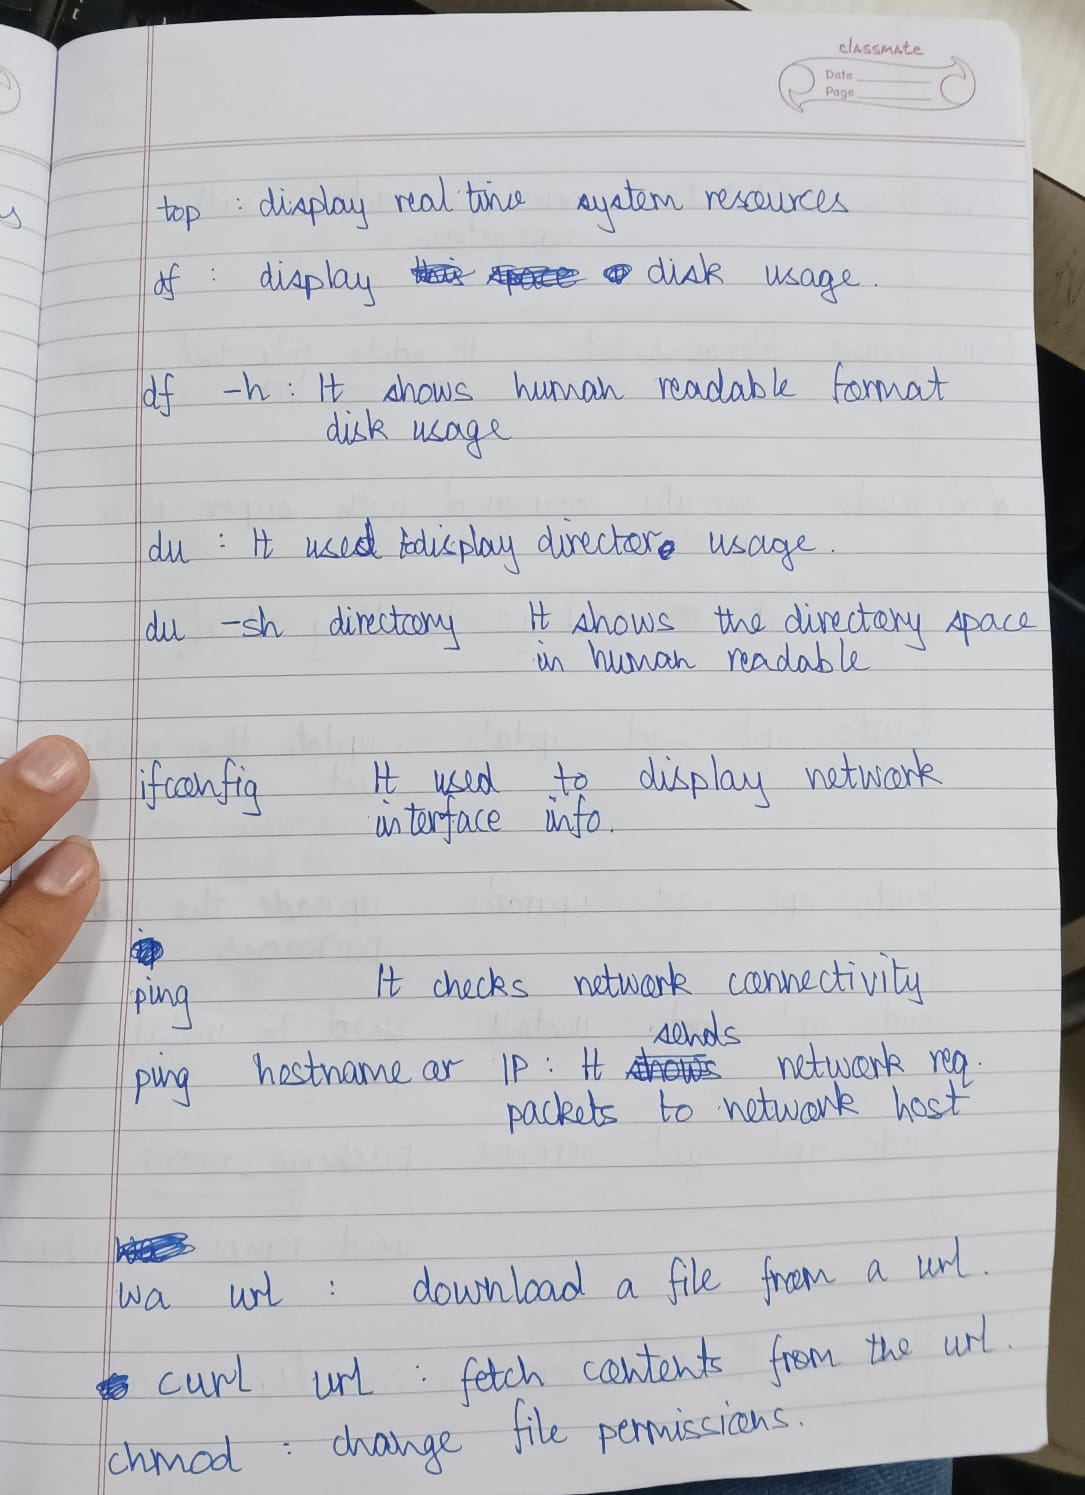 classmate
Date
Page
top : display real time system resources
df : display disk usage.
df -h : It shows human readable format
disk usage
du : It used display directore usage.
du -sh directory It shows the directory space
in human readable
ifconfig It used to display network
interface info.
ping It checks network connectivity
sends
ping hostname or IP : It shows network req.
packets to network host
wa url : download a file from a url.
curl url : fetch contents from the url.
chmod : change file permissions.